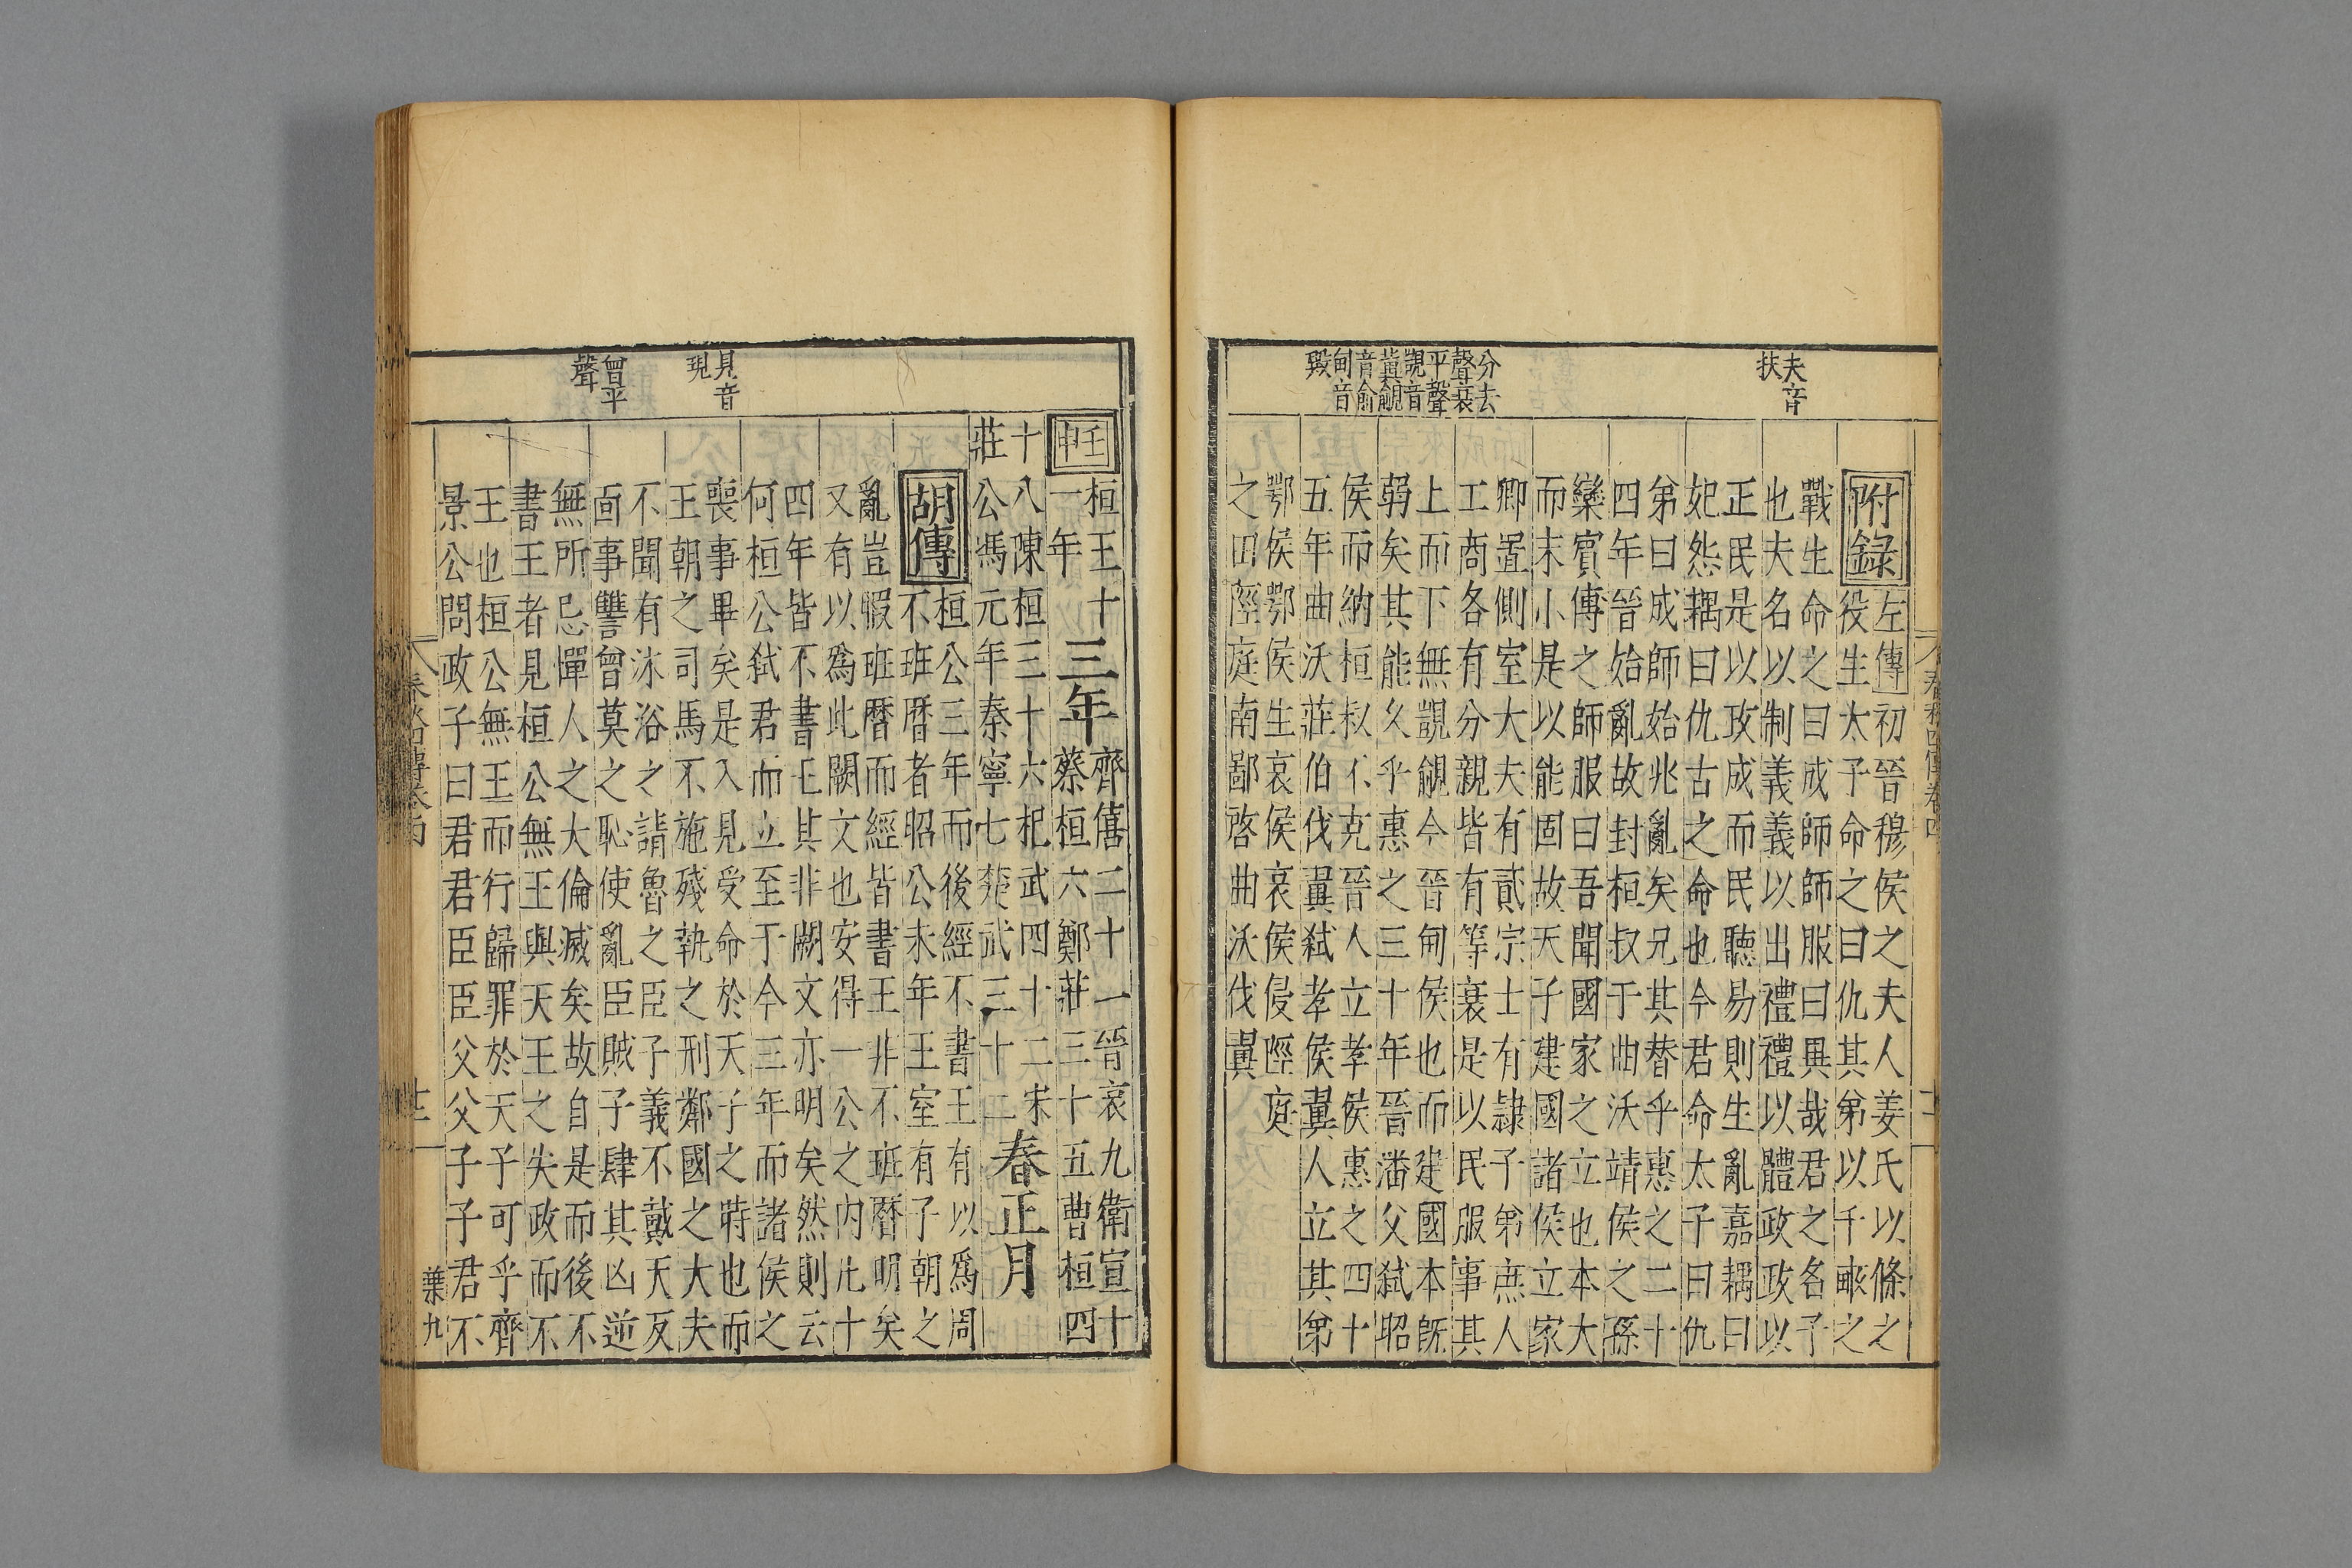 夫音
扶
分去
聲衰
平聲
覬音
冀覦
音俞
甸音
殿
春秋四傳卷四
附錄 左傳初晉穆侯之夫人姜氏以條之
役生太子命之曰仇其弟以千畝之
戰生命之曰成師師服曰異哉君之名子
也夫名以制義義以出禮禮以體政政以
正民是以政成而民聽易則生亂嘉耦曰
妃怨耦曰仇古之命也今君命太子曰仇
弟曰成師始兆亂矣兄其替乎惠之二十
四年晉始亂故封桓叔于曲沃靖侯之孫
欒賓傅之師服曰吾聞國家之立也本大
而末小是以能固故天子建國諸侯立家
卿置側室大夫有貳宗士有隷子弟庶人
工商各有分親皆有等衰是以民服事其
上而下無覬覦今晉甸侯也而建國本既
弱矣其能久乎惠之三十年晉潘父弒昭
侯而納桓叔不克晉人立孝侯惠之四十
五年曲沃莊伯伐翼弒孝侯翼人立其弟
鄂侯鄂侯生哀侯哀侯侵陘庭
之田陘庭南鄙啓曲沃伐翼
見音
現
曾平
聲
壬申 桓王十一年 三年 齊僖二十一晉哀九衛宣十
蔡桓六鄭莊三十五曹桓四
十八陳桓三十六杞武四十二宋
莊公馮元年秦寧七楚武三十二 春正月
胡傳 桓公三年而後經不書王有以爲周
不班曆者昭公末年王室有子朝之
亂豈暇班曆而經皆書王非不班曆明矣
又有以爲此闕文也安得一公之內凡十
四年皆不書王其非闕文亦明矣然則云
何桓公弒君而立至于今三年而諸侯之
喪事畢矣是入見受命於天子之時也而
王朝之司馬不施殘執之刑鄰國之大夫
不聞有沐浴之請魯之臣子義不戴天反
面事讐曾莫之恥使亂臣賊子肆其凶逆
無所忌憚人之大倫滅矣故自是而後不
書王者見桓公無王與天王之失政而不
王也桓公無王而行歸罪於天子可乎齊
景公問政子曰君君臣臣父父子子君不
葉九